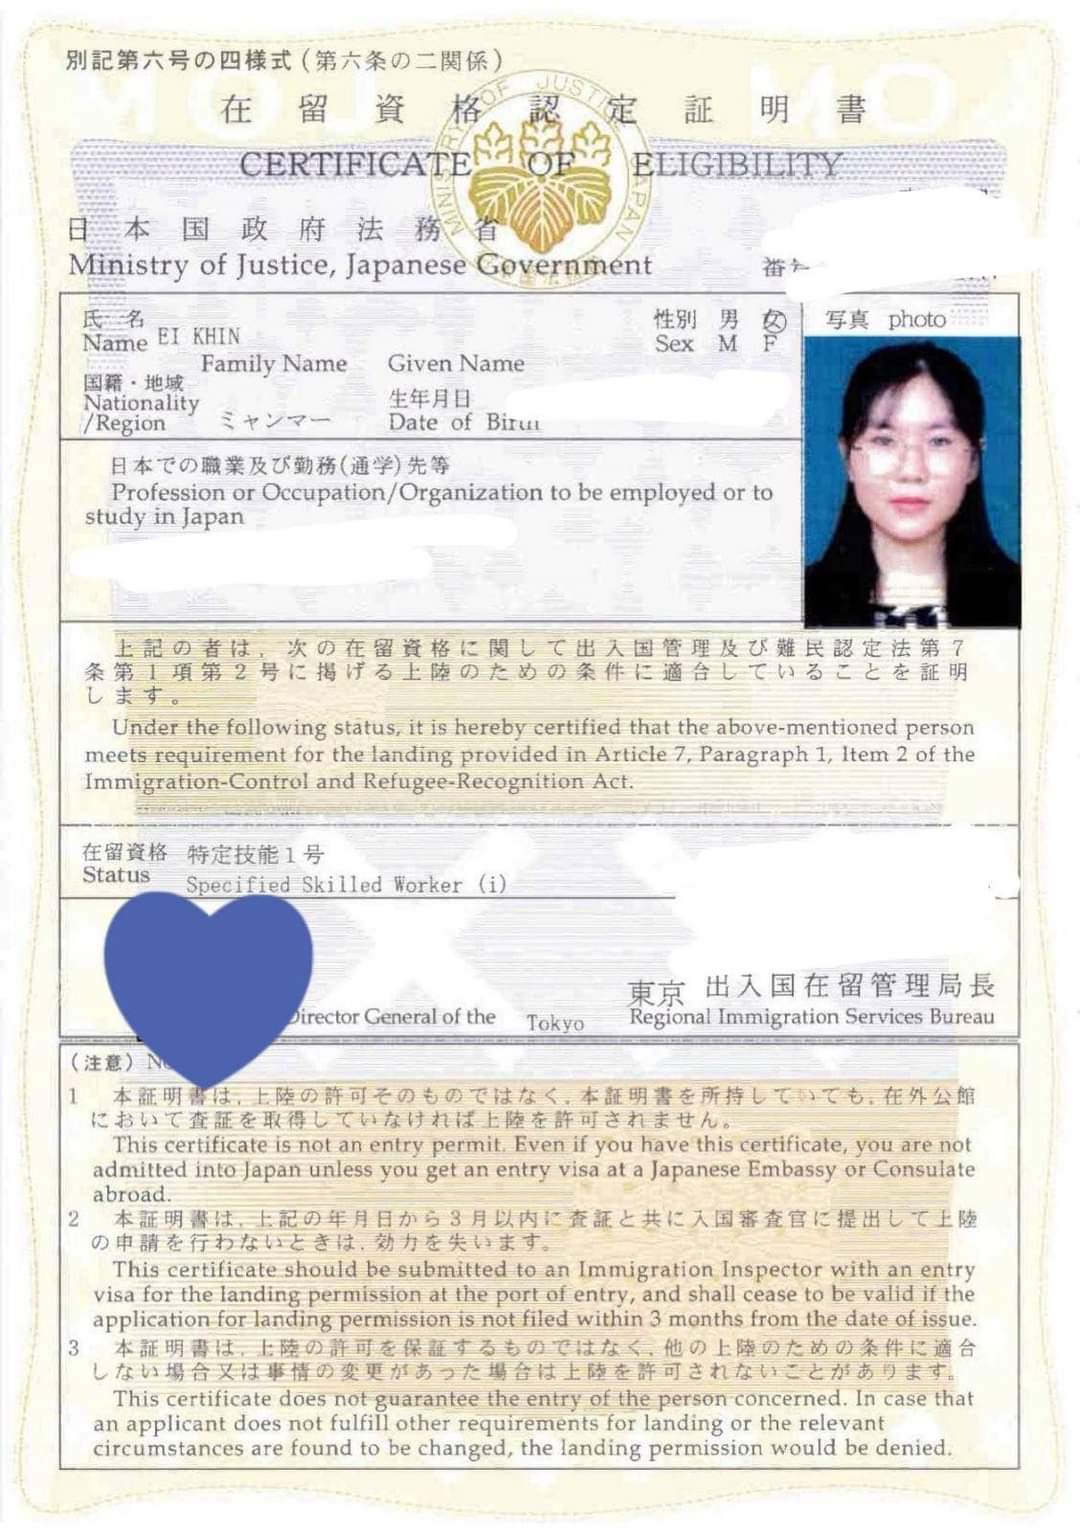 別記第六号の四様式(第六条の二関係)
在留資格認定証明書
CERTIFICATE OF ELIGIBILITY
MINISTRY OF JUSTICE JAPAN
日本国政府法務省
Ministry of Justice, Japanese Government
番
氏名 EI KHIN
Name
Family Name Given Name
性別 男 女
Sex M F
写真 photo
国籍・地域
Nationality
/Region ミャンマー
生年月日
Date of Birth
日本での職業及び勤務(通学)先等
Profession or Occupation/Organization to be employed or to
study in Japan
上記の者は、次の在留資格に関して出入国管理及び難民認定法第7
条第1項第2号に掲げる上陸のための条件に適合していることを証明
します。
Under the following status, it is hereby certified that the above-mentioned person
meets requirement for the landing provided in Article 7, Paragraph 1, Item 2 of the
Immigration-Control and Refugee-Recognition Act.
在留資格 特定技能1号
Status Specified Skilled Worker (i)
東京 出入国在留管理局長
Director General of the Tokyo Regional Immigration Services Bureau
(注意)
1 本証明書は、上陸の許可そのものではなく、本証明書を所持していても、在外公館
において査証を取得していなければ上陸を許可されません。
This certificate is not an entry permit. Even if you have this certificate, you are not
admitted into Japan unless you get an entry visa at a Japanese Embassy or Consulate
abroad.
2 本証明書は、上記の年月日から3月以内に査証と共に入国審査官に提出して上陸
の申請を行わないときは、効力を失います。
This certificate should be submitted to an Immigration Inspector with an entry
visa for the landing permission at the port of entry, and shall cease to be valid if the
application for landing permission is not filed within 3 months from the date of issue.
3 本証明書は、上陸の許可を保証するものではなく、他の上陸のための条件に適合
しない場合又は事情の変更があった場合は上陸を許可されないことがあります。
This certificate does not guarantee the entry of the person concerned. In case that
an applicant does not fulfill other requirements for landing or the relevant
circumstances are found to be changed, the landing permission would be denied.